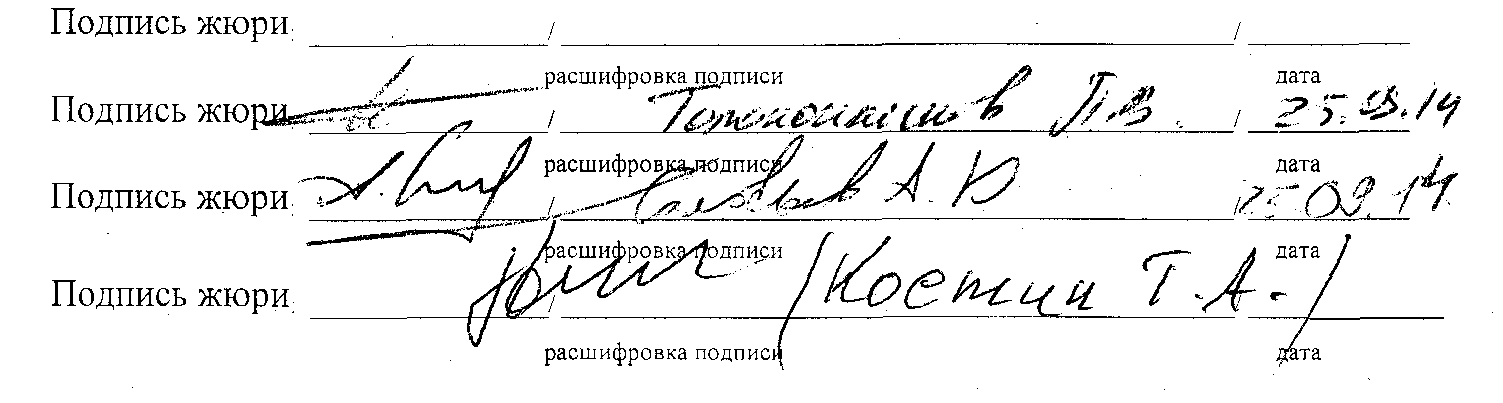 Подпись жюри / /
расшифровка подписи дата
Подпись жюри / П.В. / 25.09.14
расшифровка подписи дата
Подпись жюри / А.Ю 25.09.14
расшифровка подписи дата
Подпись жюри / (Костин Т.А.)
расшифровка подписи дата